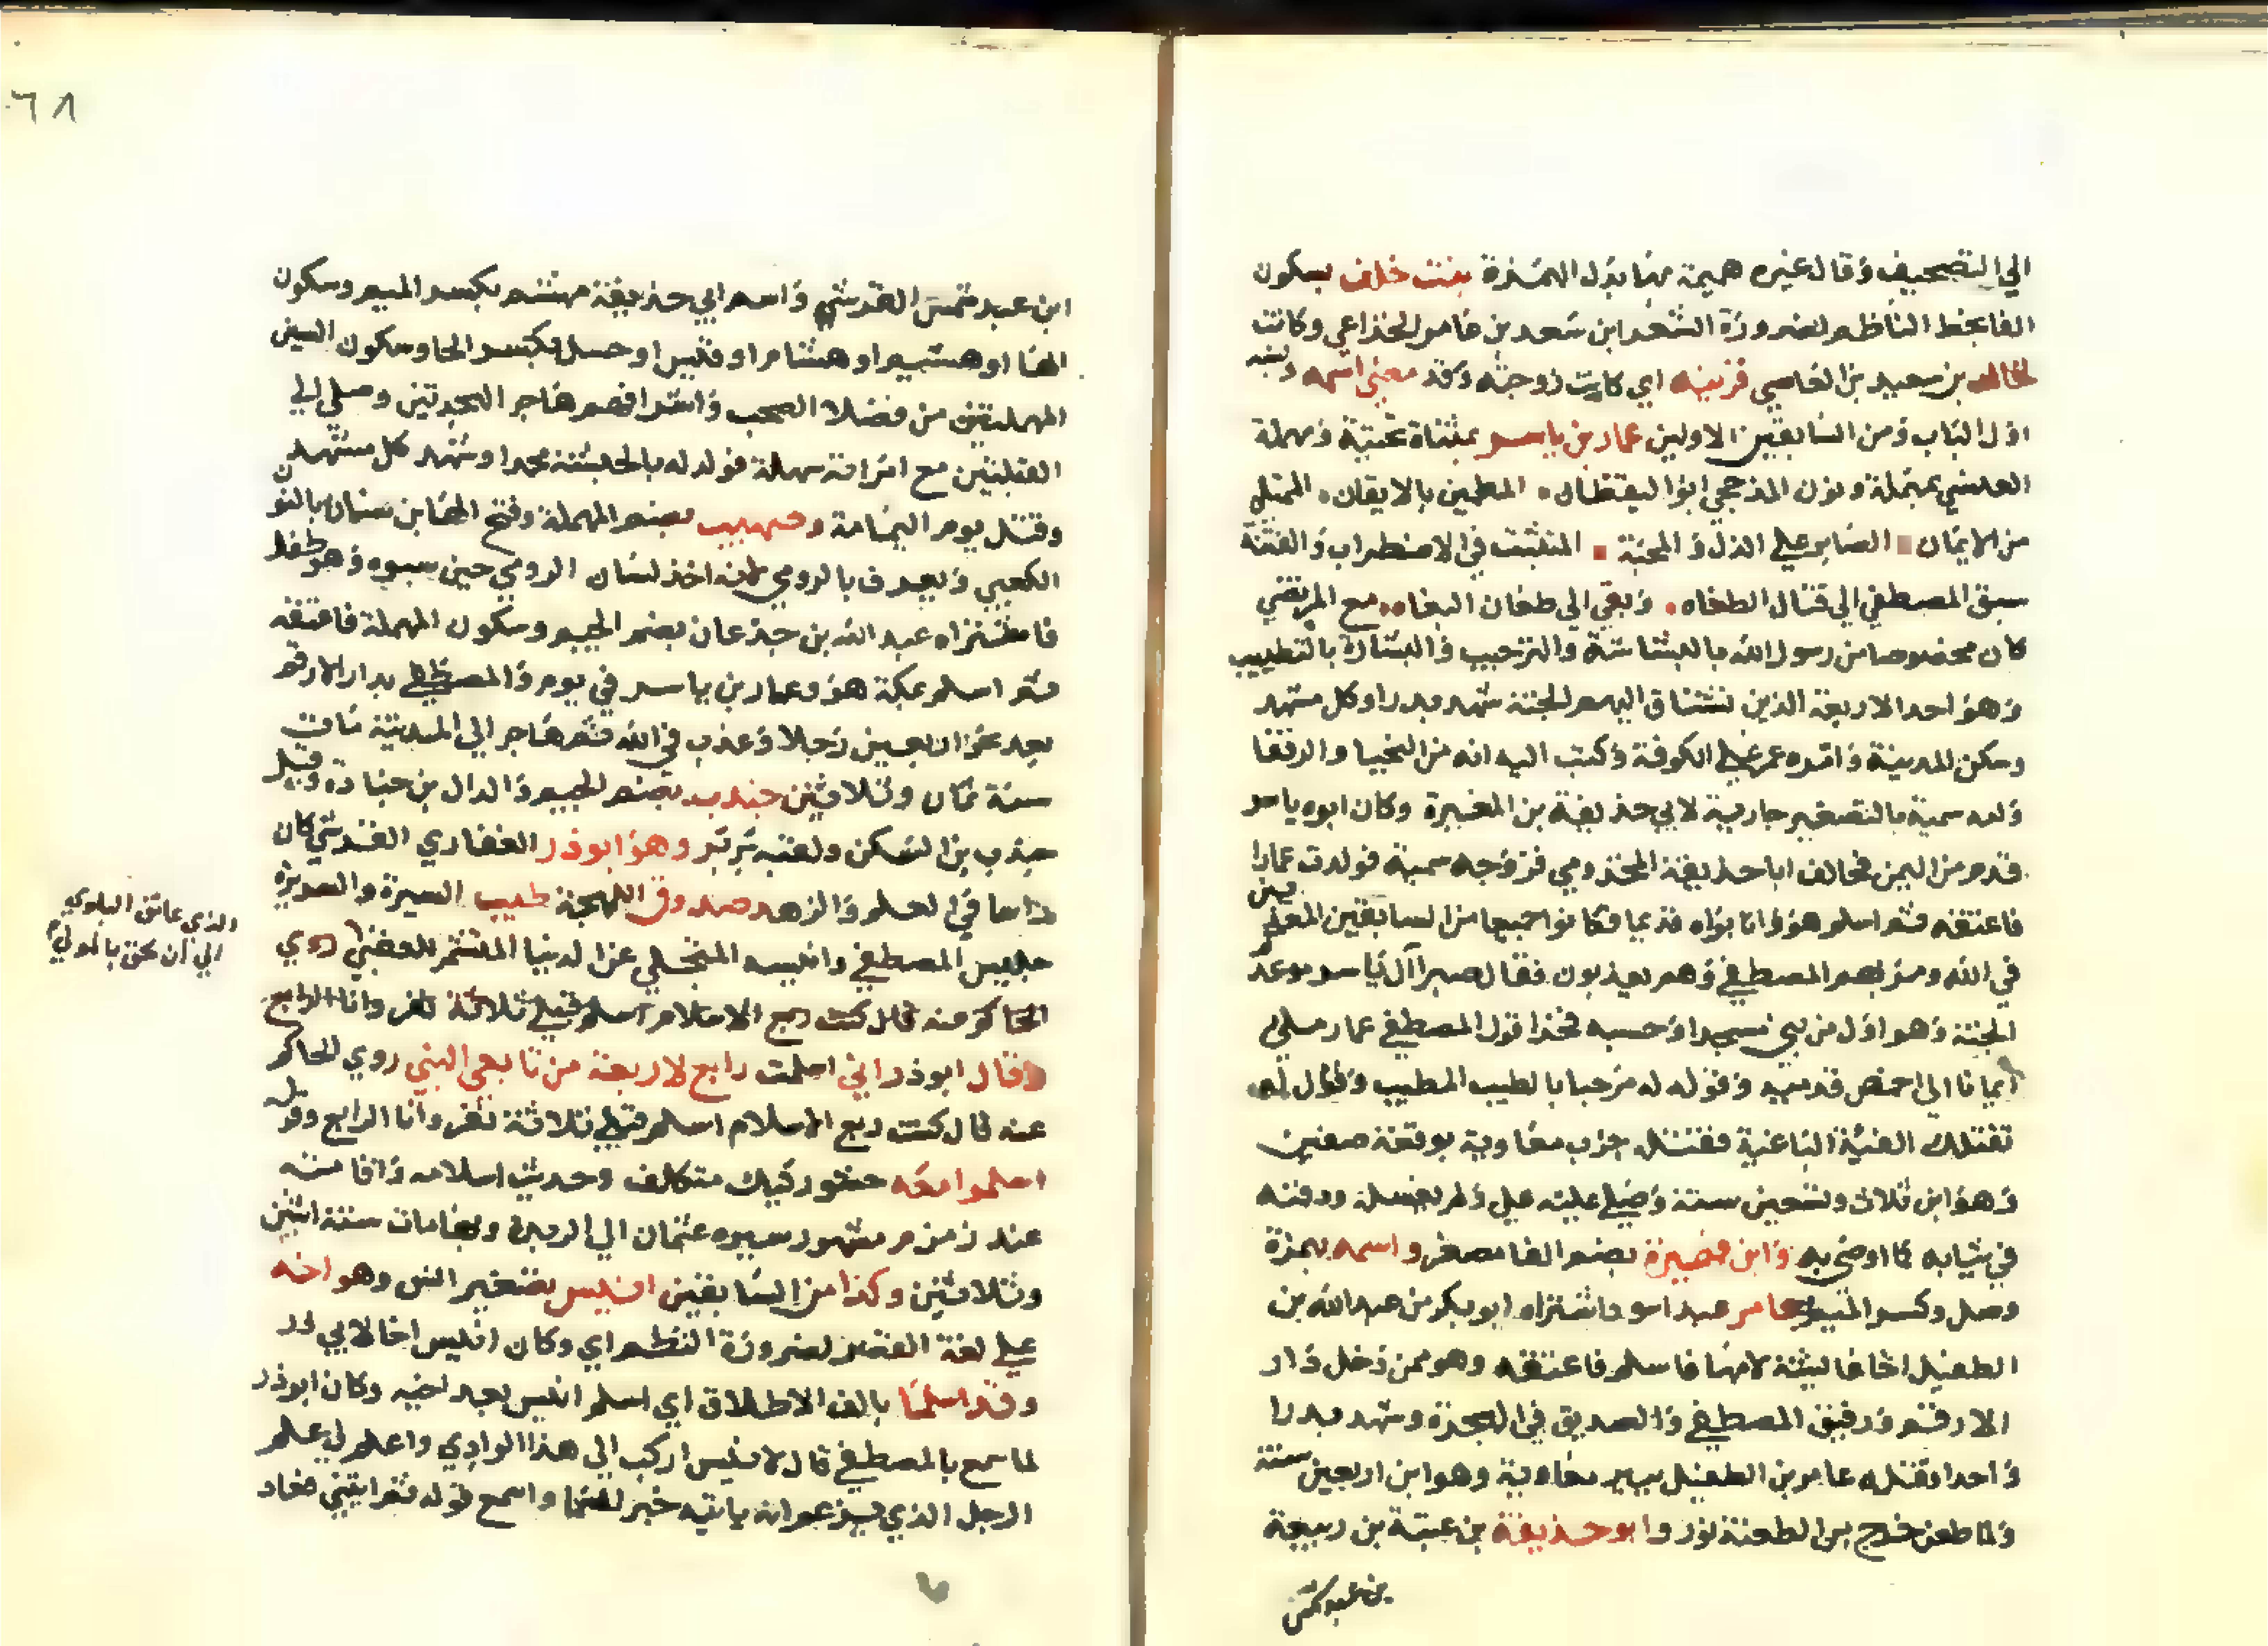 الي التصحيف وقال غيره هميمة بها بدل الهمزة بنت خلف بسكون
الفا بخط الناظم لضرورة الشعر ابن سعد بن عامر الخزاعي وكانت
لخالد بن سعيد بن العاصي قرينه اي كانت زوجته وقد معني اسمه ونسبه
اول الباب ومن السابقين الاولين عمار بن ياسر بمثناة تحتية ومهملة
العنسي بمهملة ونون المذحجي ابو اليقظان المطمين بالايقان الممتلي
من الايمان الصابر علي الذل والمحنة المتثبت في الاضطراب والفتنة
سبق المصطفي الي قتال الطغاه وبقي الي طعان البغاه مع المرتضي
كان مخصوصا من رسول الله بالبشاشة والترحيب والبشارة بالتطييب
وهو احد الاربعة الذين تشتاق اليهم الجنة شهد بدرا وكل مشهد
وسكن المدينة وامره عمر علي الكوفة وكتب اليه انه من النجبا والرفقا
ولد سمية بالتصغير جارية لابي حذيفة بن المغيرة وكان ابوه ياسر
قدم من اليمن فحالف ابا حذيفة المخزومي فزوجه سمية فولدت عمارا
فاعتقه ثم اسلم هو وابواه قديما وكانوا جميعا من السابقين المعذبين
في الله ومر بهم المصطفي وهم يعذبون فقال صبرا آل ياسر موعدكم
الجنة وهو اول من بني مسجدا وحسبه فخرا قول المصطفي عمار ملي
ايمانا الي اخمص قدميه وقوله له مرحبا بالطيب المطيب وقوله له
تقتلك الفئة الباغية فقتله حزب معاوية بوقعة صفين
وهو ابن ثلاث وتسعين سنة وصلي عليه علي ولم يغسله ودفنه
في ثيابه كما اوصي به وابن فهيرة بضم الفا مصغر واسمه بهمزة
وصل وكسر الميم عامر عبد اسود اشتراه ابو بكر من عبد الله بن
الطفيل اخا عايشة لامها فاسلم فاعتقه وهو ممن دخل دار
الارقم ورفيق المصطفي والصديق في الهجرة وشهد بدرا
واحدا وقتله عامر بن الطفيل ببير معاوية وهو ابن اربعين سنة
ولما طعن خرج من الطعنة نور وابو حذيفة بن عتبة بن ربيعة
بن عبد شمس
٦٨
ابن عبد شمس القرشي واسم ابي حذيفة مهشم بكسر الميم وسكون
الها او هشيم او هشام او قيس او حسل بكسر الحا وسكون السين
المهملتين من فضلا الصحب واشرافهم هاجر الهجرتين وصلي الي
القبلتين مع امراته سهلة فولد له بالحبشة محمدا وشهد كل مشهد
وقتل يوم اليمامة وصهيب بضم المهملة وفتح الها ابن سنان بالنون
الكعبي ويعرف بالرومي لانه اخذ لسان الرومي حين سبوه وهو طفل
فاشتراه عبد الله بن جدعان بضم الجيم وسكون المهملة فاعتقه
ثم اسلم بمكة هو وعمار بن ياسر في يوم والمصطفي بدار الارقم
بعد نحو اربعين رجلا وعذب في الله ثم هاجر الي المدينة مات
سنة ثمان وثلاثين جندب بضم الجيم والدال بن جنادة وقيل
جندب بن السكن ولقبه برير وهو ابوذر الغفاري القرشي كان
راسا في العلم والزهد صدوق اللهجة طيب السيرة والسريرة
جليس المصطفي وانيسه المتخلي عن الدنيا المتشمر للعقبي روي
الحاكم عنه قال كنت ربع الاسلام اسلم قبلي ثلاثة نفر وانا الرابع
وقال ابوذر اني اسلمت رابع لاربعة من تابعي النبي روي الحاكم
عنه قال كنت ربع الاسلام اسلم قبلي ثلاثة نفر وانا الرابع وقوله
اسلموا معه حشو ركيك متكلف وحديث اسلامه واقامته
عند زمزم مشهور سيره عثمان الي الربذة وبها مات سنة اثنين
وثلاثين وكذا من السابقين انيس بتصغير انس وهو اخه
علي لغة القصر لضرورة النظم اي وكان انيس اخا لابي ذر
وقد اسلما بالف الاطلاق اي اسلم انيس بعد اخيه وكان ابوذر
لما سمع بالمصطفي قال لانيس اركب الي هذا الوادي واعلم لي علم
الرجل الذي يزعم انه ياتيه خبر السما واسمع قوله ثم ايتني فعاد
الذي عانق البلوي
الي ان لحق بالمولي